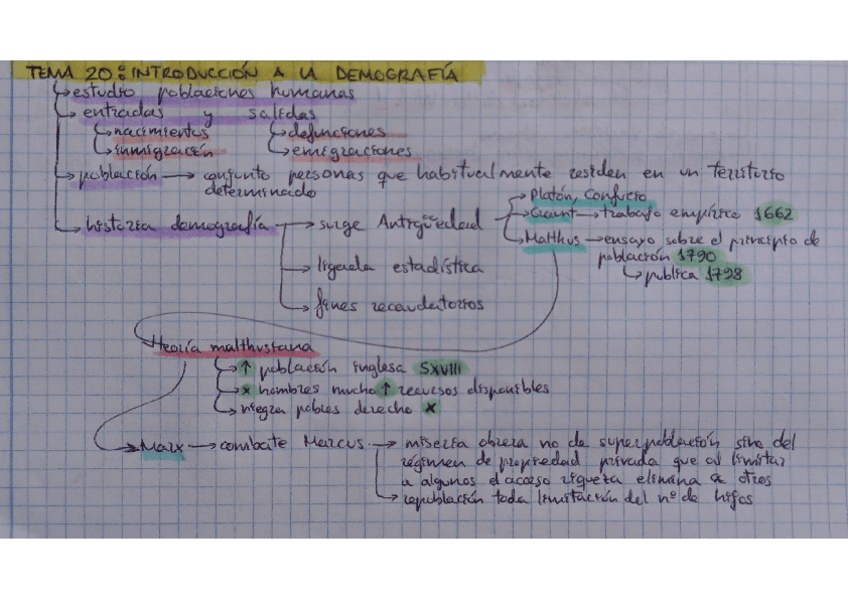 TEMA 20: INTRODUCCIÓN A LA DEMOGRAFÍA
estudio poblaciones humanas
entradas y salidas
nacimientos defunciones
inmigración emigraciones
población → conjunto personas que habitualmente residen en un territorio
determinado
Platón, Confucio
historia demografía → surge Antigüedad Graunt → trabajo empírico 1662
Malthus → ensayo sobre el principio de
población 1790
publica 1798
ligada estadística
fines recaudatorios
teoría malthusiana
↑ población inglesa SXVIII
x hombres mucho ↑ recursos disponibles
niega pobres derecho x
Marx → combate Marcus → miseria obrera no de superpoblación sino del
régimen de propiedad privada que al limitar
a algunos el acceso riqueza elimina a otros
republación toda limitación del nº de hijos